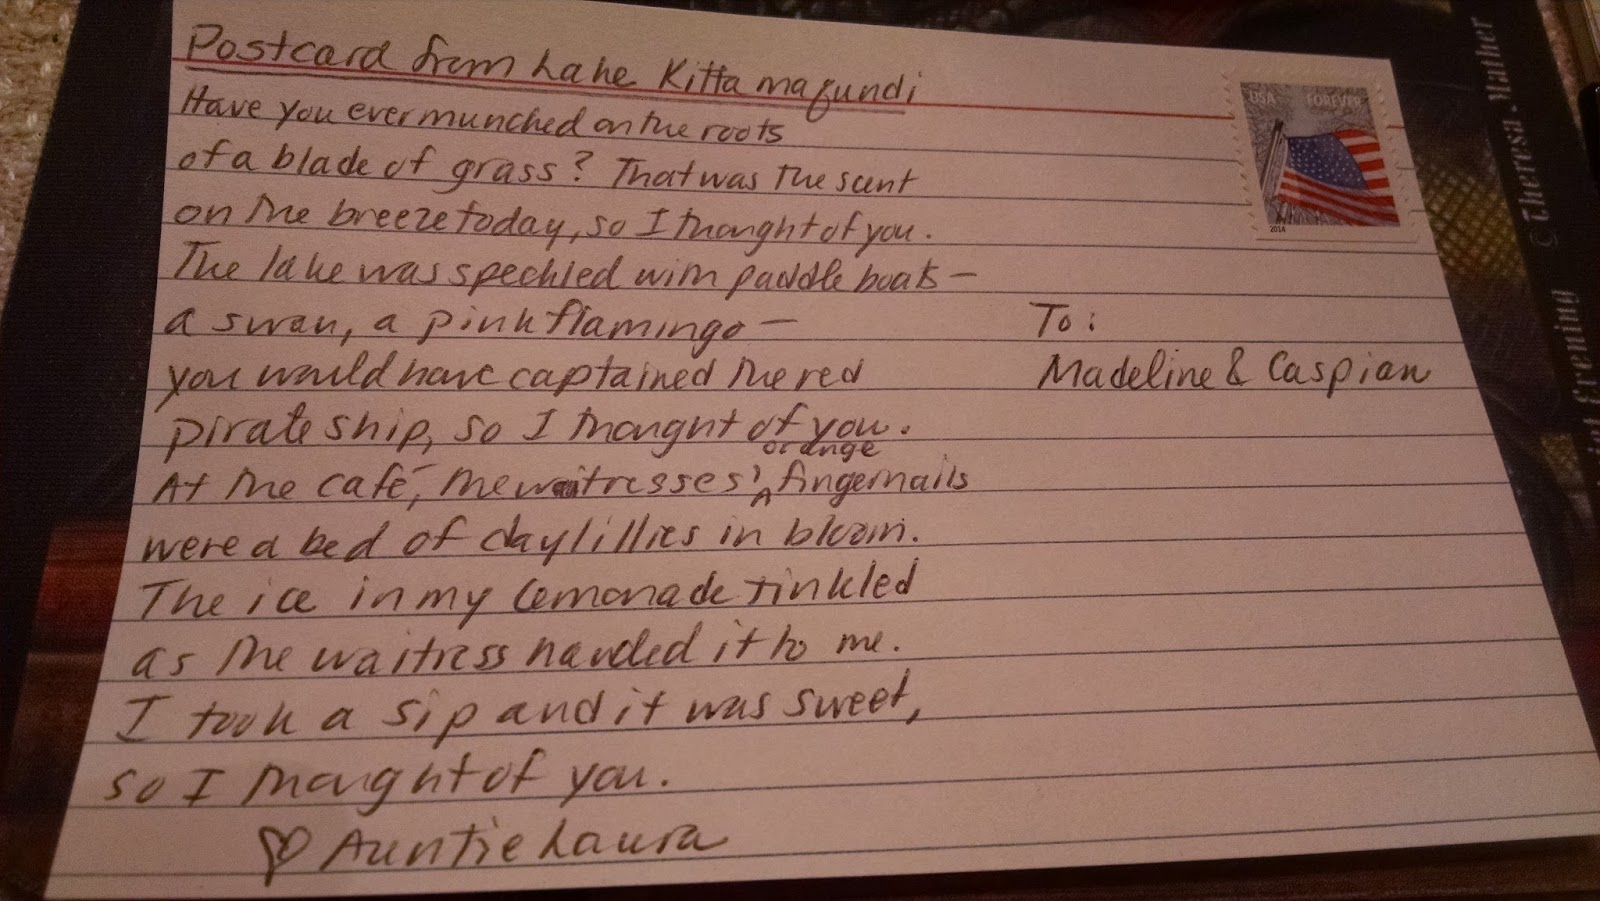 Postcard from Lake Kittamaqundi
Have you ever munched on the roots
of a blade of grass? That was the scent
on the breeze today, so I thought of you.
The lake was speckled with paddle boats —
a swan, a pink flamingo —
you would have captained the red
pirate ship, so I thought of you.
At the café, the waitresses' orange fingernails
were a bed of daylillies in bloom.
The ice in my lemonade tinkled
as the waitress handed it to me.
I took a sip and it was sweet,
so I thought of you.
♡ Auntie Laura
To:
Madeline & Caspian
USA FOREVER
2014
© Theresa Mather
Evening